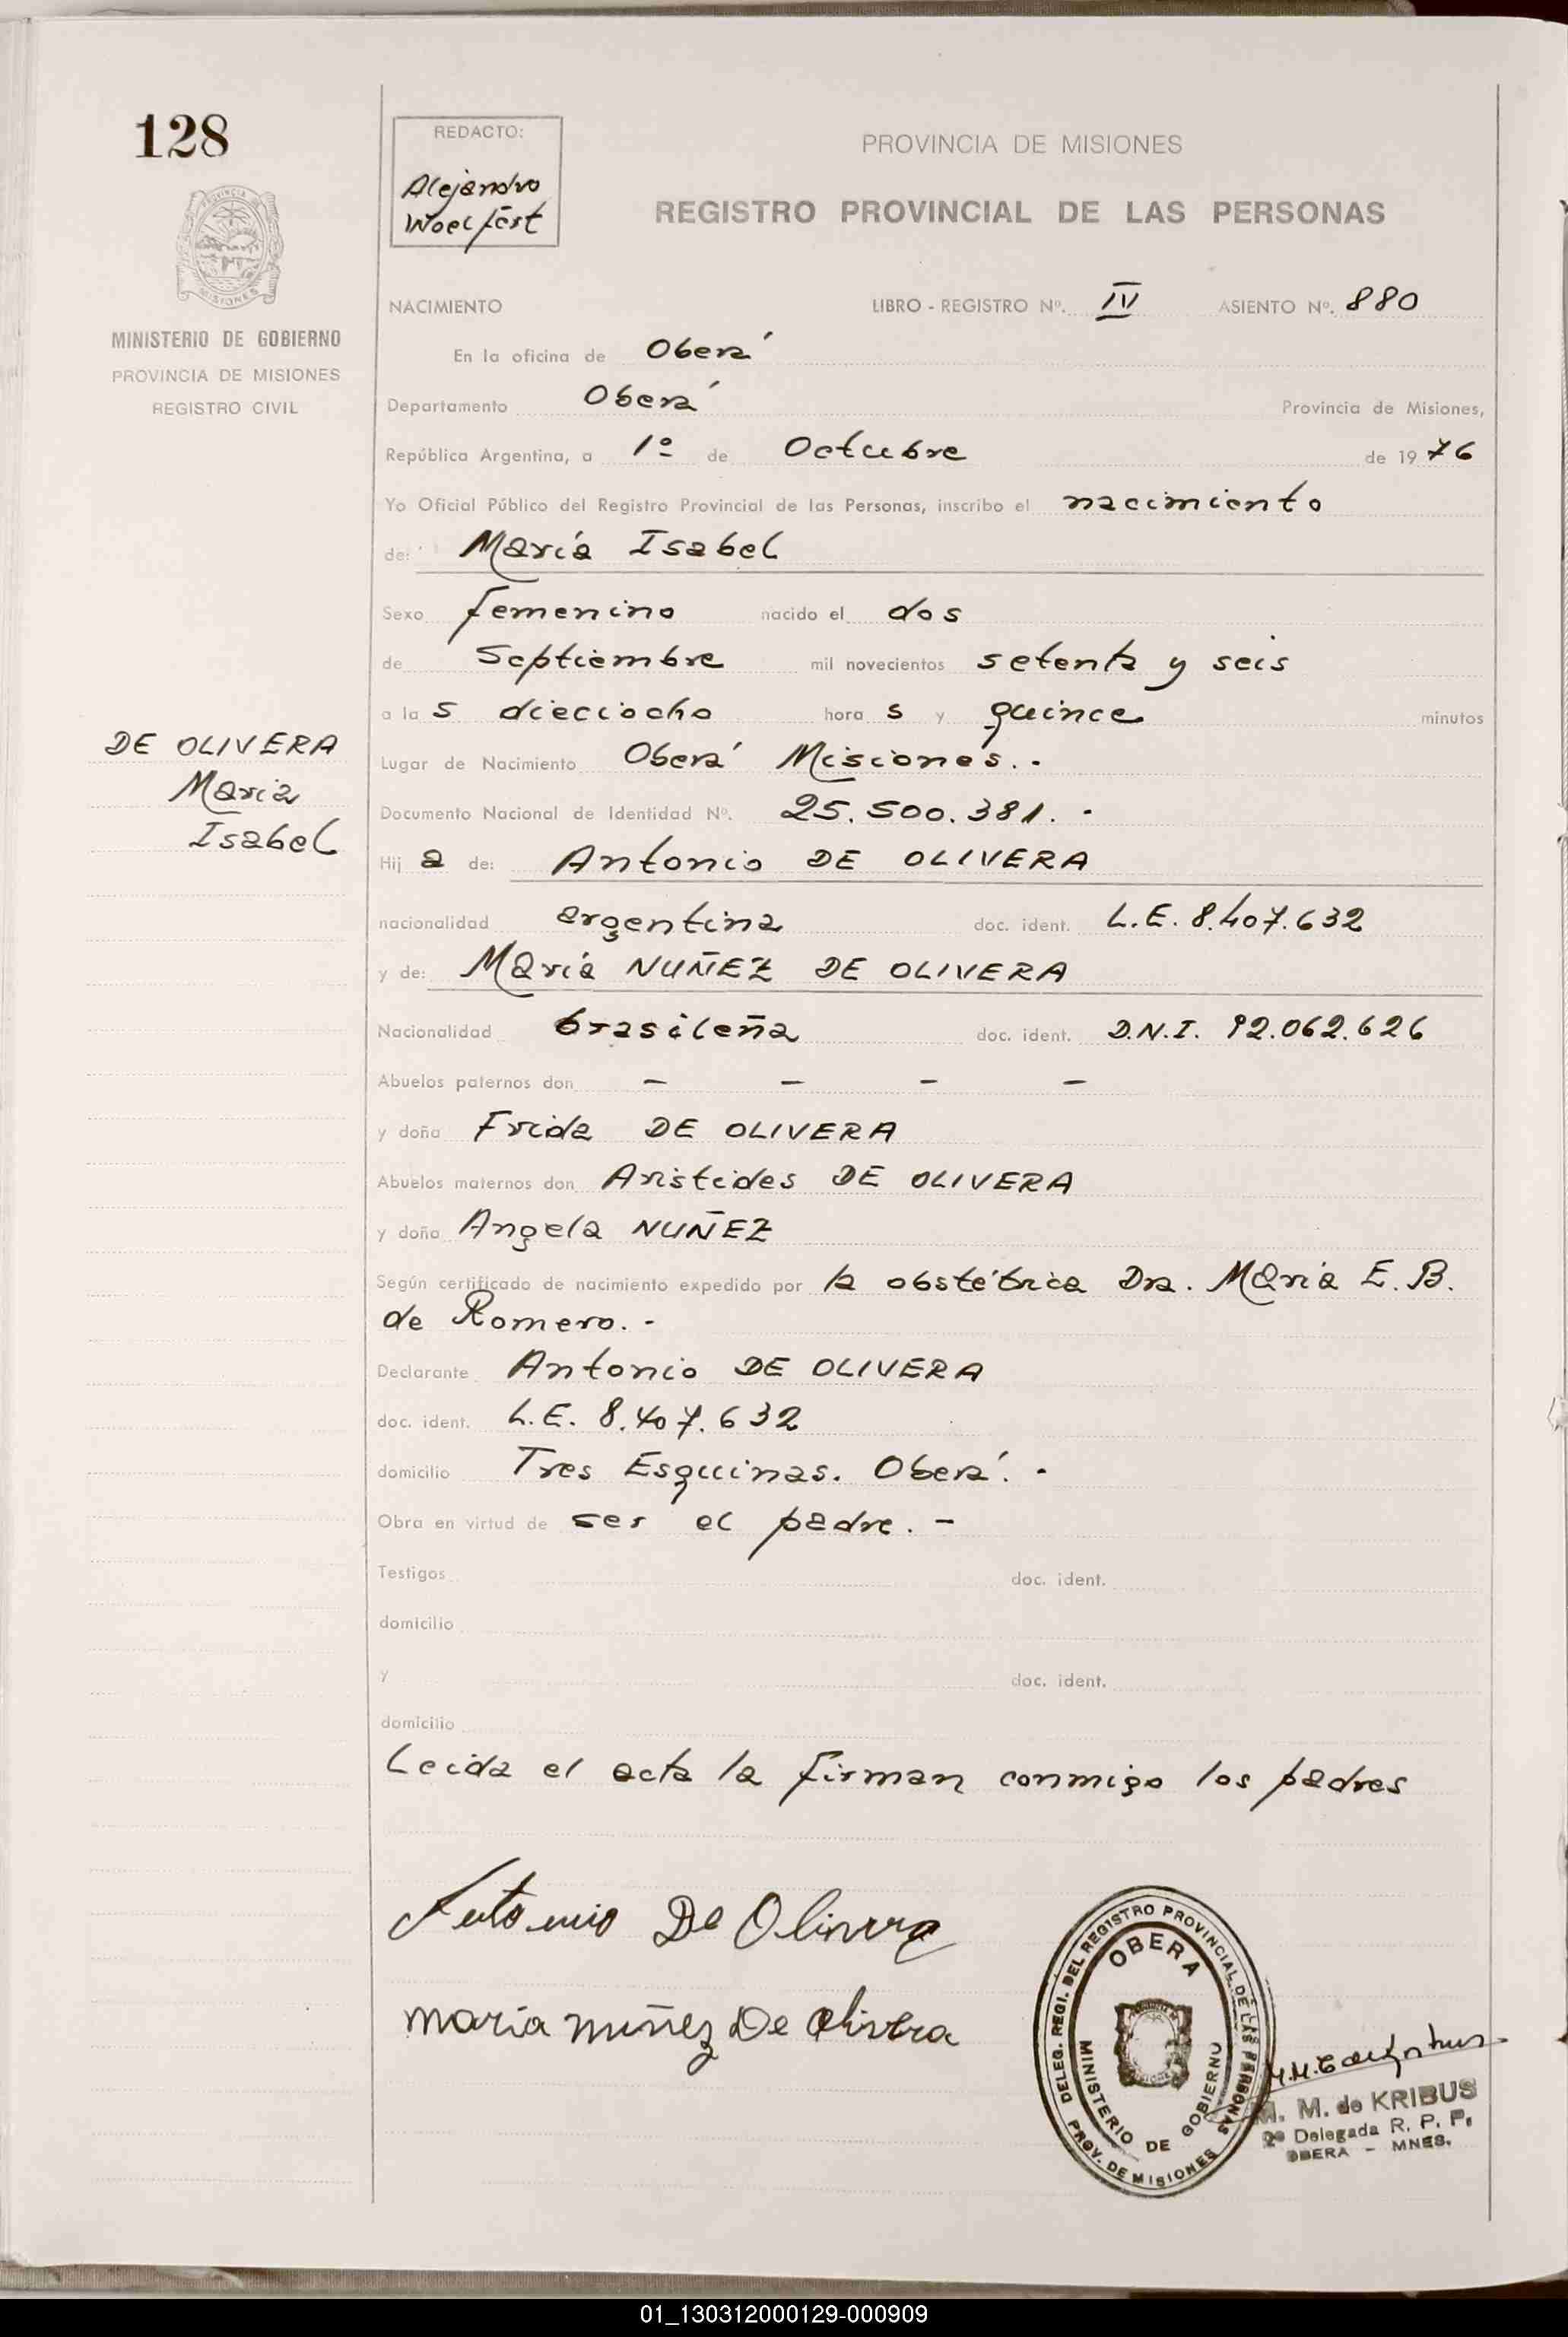 128
REDACTO:
Alejandro
Woelfert
PROVINCIA DE MISIONES
REGISTRO PROVINCIAL DE LAS PERSONAS
PROVINCIA
MISIONES
MINISTERIO DE GOBIERNO
PROVINCIA DE MISIONES
REGISTRO CIVIL
NACIMIENTO LIBRO - REGISTRO Nº. IV ASIENTO Nº. 880
En la oficina de Oberá
Departamento Oberá Provincia de Misiones,
República Argentina, a 1º de Octubre de 1976
Yo Oficial Público del Registro Provincial de las Personas, inscribo el nacimiento
de: María Isabel
Sexo femenino nacido el dos
de Septiembre mil novecientos setenta y seis
a las dieciocho horas y quince minutos
DE OLIVERA
María
Isabel
Lugar de Nacimiento Oberá Misiones.-
Documento Nacional de Identidad Nº. 25.500.381.-
Hija de: Antonio DE OLIVERA
nacionalidad argentina doc. ident. L.E. 8.407.632
y de: María NUÑEZ DE OLIVERA
Nacionalidad brasileña doc. ident. D.N.I. 92.062.626
Abuelos paternos don - - - -
y doña Frida DE OLIVERA
Abuelos maternos don Aristides DE OLIVERA
y doña Angela NUÑEZ
Según certificado de nacimiento expedido por la obstétrica Dra. María E. B.
de Romero.-
Declarante Antonio DE OLIVERA
doc. ident. L.E. 8.407.632
domicilio Tres Esquinas. Oberá.-
Obra en virtud de ser el padre.-
Testigos doc. ident.
domicilio
y doc. ident.
domicilio
Leida el acta la firman conmigo los padres
Antonio De Olivera
maría nuñez De Olivera
DELEG. REGI. DEL REGISTRO PROVINCIAL DE LAS PERSONAS
OBERA
MINISTERIO DE GOBIERNO
PROV. DE MISIONES
M. M. de KRIBUS
2º Delegada R. P. P.
OBERA - MNES.
01_130312000129-000909